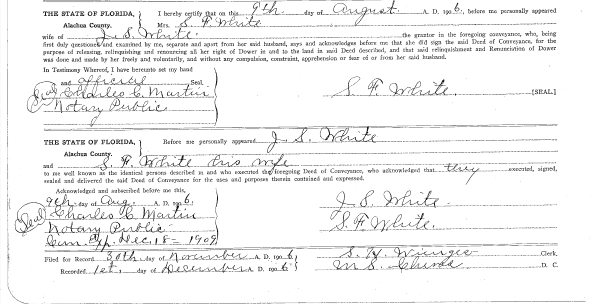 THE STATE OF FLORIDA, I hereby certify that on this 9th. day of August A. D. 1906, before me personally appeared
Alachua County. Mrs. S. F. White
wife of J. S. White. the grantor in the foregoing conveyance, who, being
first duly questioned and examined by me, separate and apart from her said husband, says and acknowledges before me that she did sign the said Deed of Conveyance, for the
purpose of releasing, relinquishing and renouncing all her right of Dower in and to the land in said Deed described, and that said Relinquishment and Renunciation of Dower
was done and made by her freely and voluntarily, and without any compulsion, constraint, apprehension or fear of or from her said husband.
In Testimony Whereof, I have hereunto set my hand
and official Seal.
Seal Charles C. Martin
Notary Public.
S. F. White. [SEAL]
THE STATE OF FLORIDA, Before me personally appeared J. S. White
Alachua County.
and S. F. White his wife
to me well known as the identical persons described in and who executed the foregoing Deed of Conveyance, who acknowledged that they executed, signed,
sealed and delivered the said Deed of Conveyance for the uses and purposes therein contained and expressed.
Acknowledged and subscribed before me this,
9th. day of Aug. A. D. 1906.
Seal Charles C. Martin
Notary Public
Com. Exp. Dec. 18 - 1909
J. S. White.
S. F. White.
Filed for Record 30th. day of November A. D. 1906; S. H. Wienges Clerk,
Recorded 1st. day of December A. D. 1906; M. S. D. C.